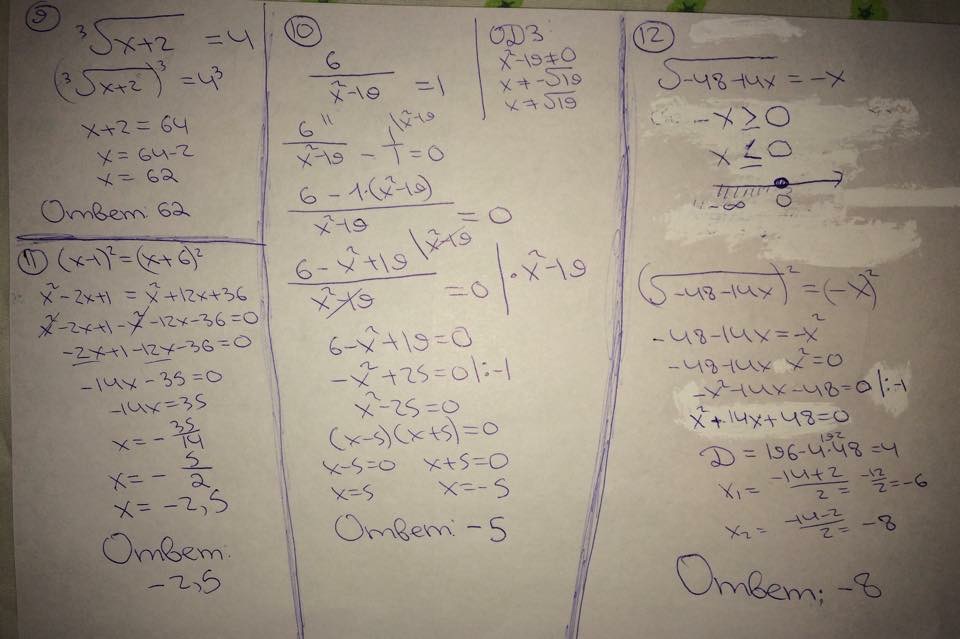 9
³√x+2 = 4
(³√x+2)³ = 4³
x+2 = 64
x = 64-2
x = 62
Ответ: 62
11 (x-1)² = (x+6)²
x²-2x+1 = x²+12x+36
x²-2x+1-x²-12x-36=0
-2x+1-12x-36=0
-14x-35=0
-14x=35
x = -35/14
x = -5/2
x = -2,5
Ответ:
-2,5
10
6/(x²-19) = 1
6/(x²-19) - 1/1 = 0
6-1·(x²-19)/(x²-19) = 0
6-x²+19/(x²-19) = 0 |·x²-19
6-x²+19=0
-x²+25=0 |:-1
x²-25=0
(x-5)(x+5)=0
x-5=0 x+5=0
x=5 x=-5
Ответ: -5
ОДЗ:
x²-19≠0
x≠-√19
x≠√19
12
√-48-14x = -x
-x ≥ 0
x ≤ 0
-∞ 0
(√-48-14x)² = (-x)²
-48-14x=-x²
-48-14x x²=0
-x²-14x-48=0 |:-1
x²+14x+48=0
D = 196-4·48=4
192
x₁ = -14+2/2 = -12/2 = -6
x₂ = -14-2/2 = -8
Ответ: -8